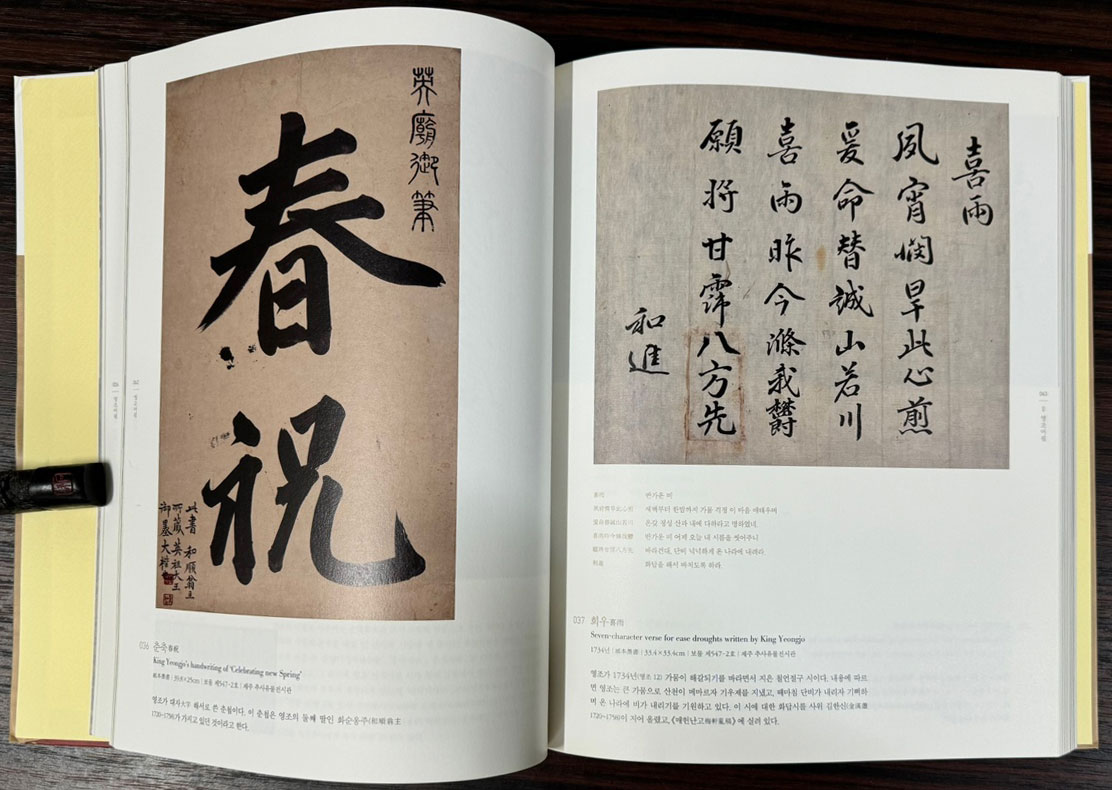 英廟御筆
春祝
此書 和順翁主
所藏 英祖大王
御墨大楷也
036 춘축春祝
King Yeongjo's handwriting of 'Celebrating new Spring'
紙本墨書 | 39.8×25cm | 보물 제547-2호 | 제주 추사유물전시관
영조가 대자大字 해서로 쓴 춘축이다. 이 춘축은 영조의 둘째 딸인 화순옹주(和順翁主
1720~1758)가 가지고 있던 것이라고 한다.
喜雨
夙宵憫旱此心煎
爰命替誠山若川
喜雨昨今滌我欝
願將甘霈八方先
和進
喜雨 반가운 비
夙宵憫旱此心煎 새벽부터 한밤까지 가뭄 걱정 이 마음 애태우며
爰命替誠山若川 온갖 정성 산과 내에 다하라고 명하였네.
喜雨昨今滌我欝 반가운 비 어제 오늘 내 시름을 씻어주니
願將甘霈八方先 바라건대, 단비 넉넉하게 온 나라에 내려라.
和進 화답을 해서 바치도록 하라.
037 희우喜雨
Seven-character verse for ease droughts written by King Yeongjo
1734년 | 紙本墨書 | 33.4×33.4cm | 보물 제547-2호 | 제주 추사유물전시관
영조가 1734년(영조 12) 가뭄이 해갈되기를 바라면서 지은 칠언절구 시이다. 내용에 따르
면 영조는 큰 가뭄으로 산천이 메마르자 기우제를 지냈고, 때마침 단비가 내리자 기뻐하
며 온 나라에 비가 내리기를 기원하고 있다. 이 시에 대한 화답시를 사위 김한신(金漢藎
1720~1758)이 지어 올렸고, 《매헌난고梅軒亂稿》에 실려 있다.